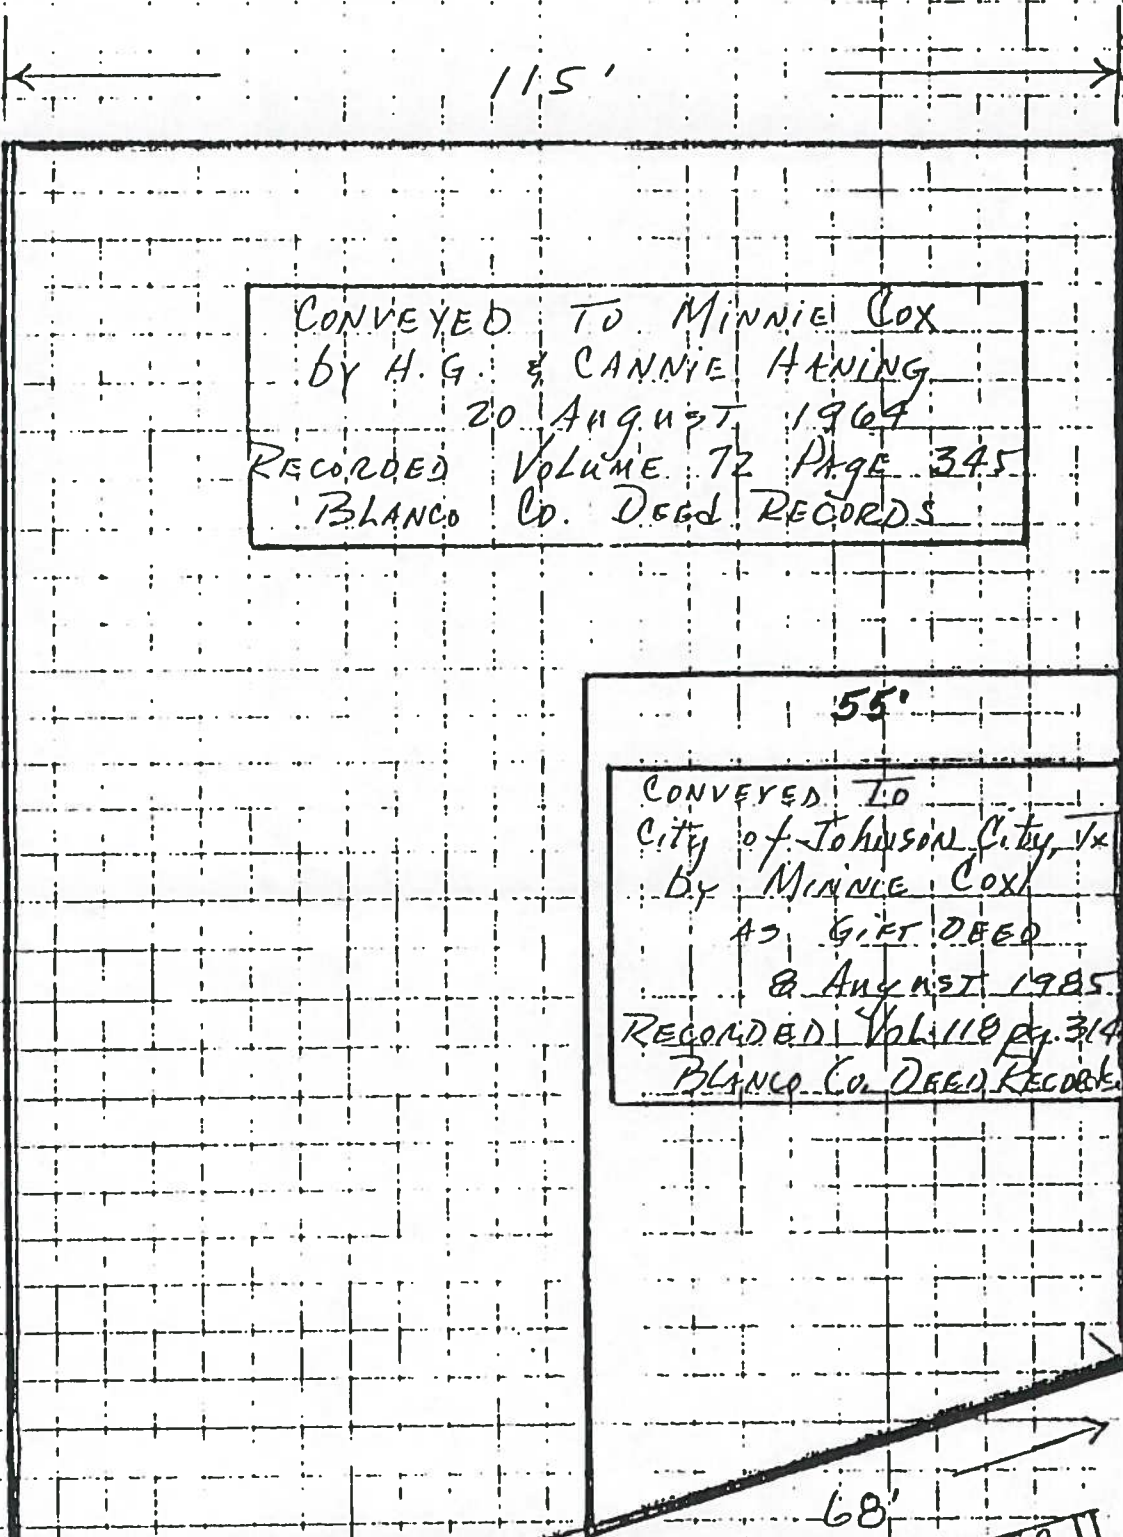 115'
CONVEYED TO MINNIE COX
by H.G. & CANNIE HANING
20 August 1964
RECORDED VOLUME 72 PAGE 345
BLANCO CO. DEED RECORDS
55'
CONVEYED TO
City of Johnson City, Tx
by MINNIE COX
AS GIFT DEED
8 August 1985
RECORDED Vol. 118 pg. 314
BLANCO CO. DEED RECORDS
68'